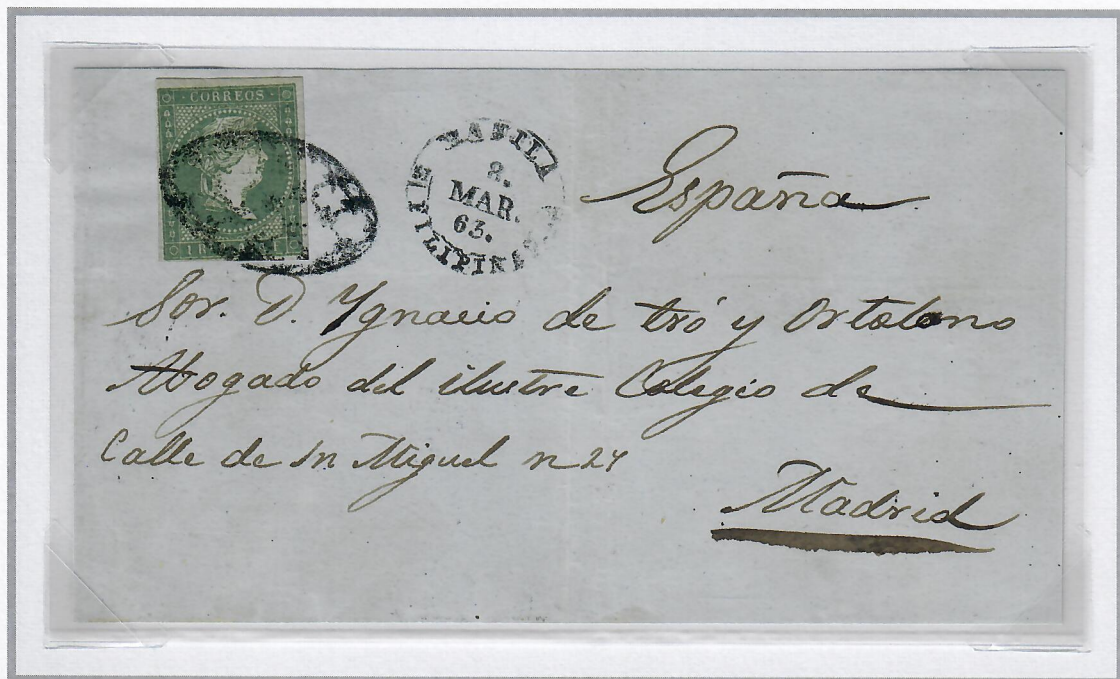 CORREOS
MANILA
8.
MAR.
63.
FILIPINAS
España
Sor. D. Ygnacio de tró y Ortolano
Abogado del ilustre Colegio de
Calle de Sn Miguel n 27
Madrid